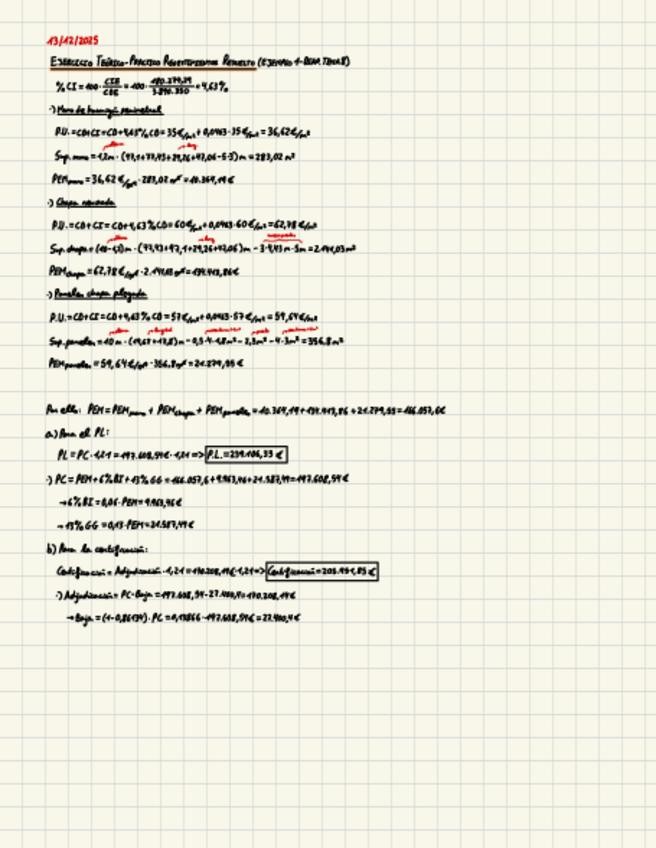 13/12/2025
EJERCICIO TEÓRICO-PRÁCTICO REVESTIMIENTOS RESUELTO (EJEMPLO 1-BEAR TEMA 8)
%CI = 100 · CIE/CDE = 100 · 180.279,29/3.890.350 = 4,63%
·) Muro de hormigón perimetral
P.U. = CD+CI = CD+4,63%CD = 35€/m² + 0,0463·35€/m² = 36,62€/m²
Sup. muro = 1,2m · (47,1+77,43+29,26+47,06-5·3)m = 283,02m²
PEM muro = 36,62€/m² · 283,02m² = 10.364,19€
·) Chapa nervada
P.U. = CD+CI = CD+4,63%CD = 60€/m² + 0,0463·60€/m² = 62,78€/m²
PEM chapa = 62,78€/m² · 2.141,03m² = 134.413,86€
·) Paneles chapa plegada
P.U. = CD+CI = CD+4,63%CD = 57€/m² + 0,0463·57€/m² = 59,64€/m²
PEM paneles = 59,64€/m² · 356,8m² = 21.279,55€
Por ello: PEM = PEM muro + PEM chapa + PEM paneles = 10.364,19+134.413,86+21.279,55 = 166.057,6€
a) Para el PL:
PL = PC·1,21 = 197.608,54€·1,21 => P.L. = 239.106,33€
·) PC = PEM+6%BI+13%GG = 166.057,6+9.963,46+21.587,49 = 197.608,54€
→ 6%BI = 0,06·PEM = 9.963,46€
→ 13%GG = 0,13·PEM = 21.587,49€
b) Para la certificación:
Certificación = Adjudicación·1,21 = 170.208,14€·1,21 => Certificación = 205.951,85€
·) Adjudicación = PC-Baja = 197.608,54-27.400,4 = 170.208,14€
→ Baja = (1-0,86134)·PC = 0,13866·197.608,54€ = 27.400,4€